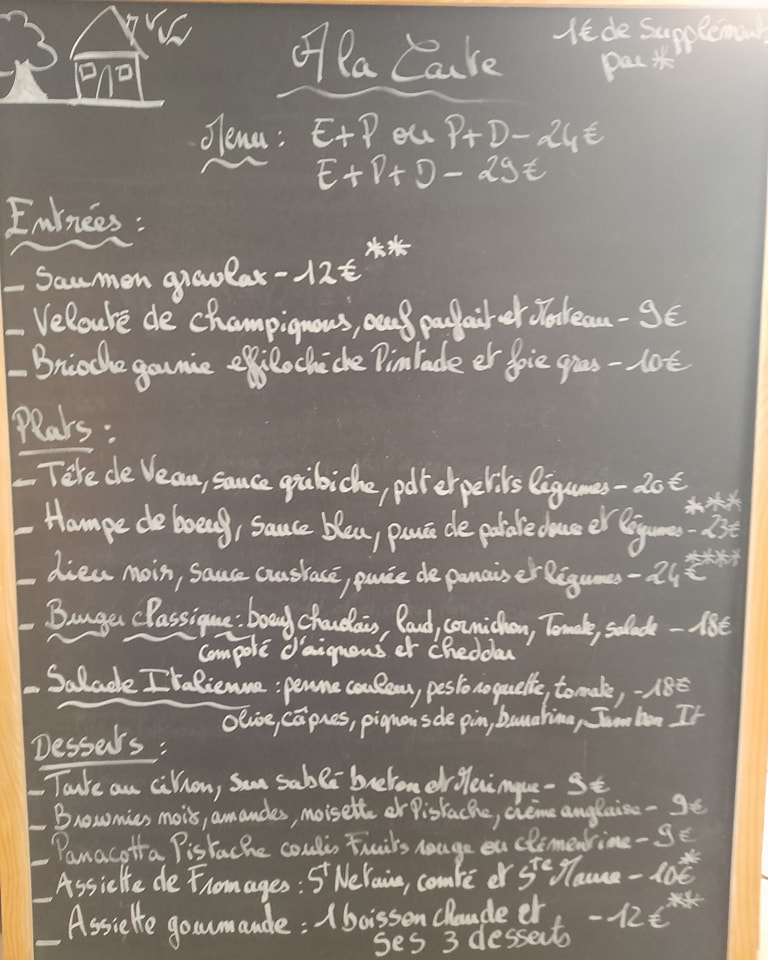 A la Carte
1€ de Supplément
par *
Menu : E+P ou P+D - 24€
E+P+D - 29€
Entrées :
- Saumon gravlax - 12€ **
- Velouté de champignons, oeuf parfait et Morteau - 9€
- Brioche garnie effiloché de Pintade et foie gras - 10€
Plats :
- Tête de Veau, sauce gribiche, pdt et petits légumes - 20€
- Hampe de boeuf, sauce bleu, purée de patate douce et légumes - 23€ ***
- Lieu noir, sauce crustacé, purée de panais et légumes - 24€ ****
- Burger classique : boeuf charolais, lard, cornichon, Tomate, salade - 18€
compoté d'oignons et cheddar
- Salade Italienne : penne couleur, pesto roquette, tomate, - 18€
olive, câpres, pignons de pin, burratina, Jambon It
Desserts :
- Tarte au citron, sur sablé breton et Meringue - 9€
- Brownies noix, amandes, noisette et Pistache, crème anglaise - 9€
- Panacotta Pistache coulis Fruits rouge ou clémentine - 9€
- Assiette de Fromages : St Netaire, comté et Ste Maure - 10€ *
- Assiette gourmande : 1 boisson chaude et - 12€ **
ses 3 desserts